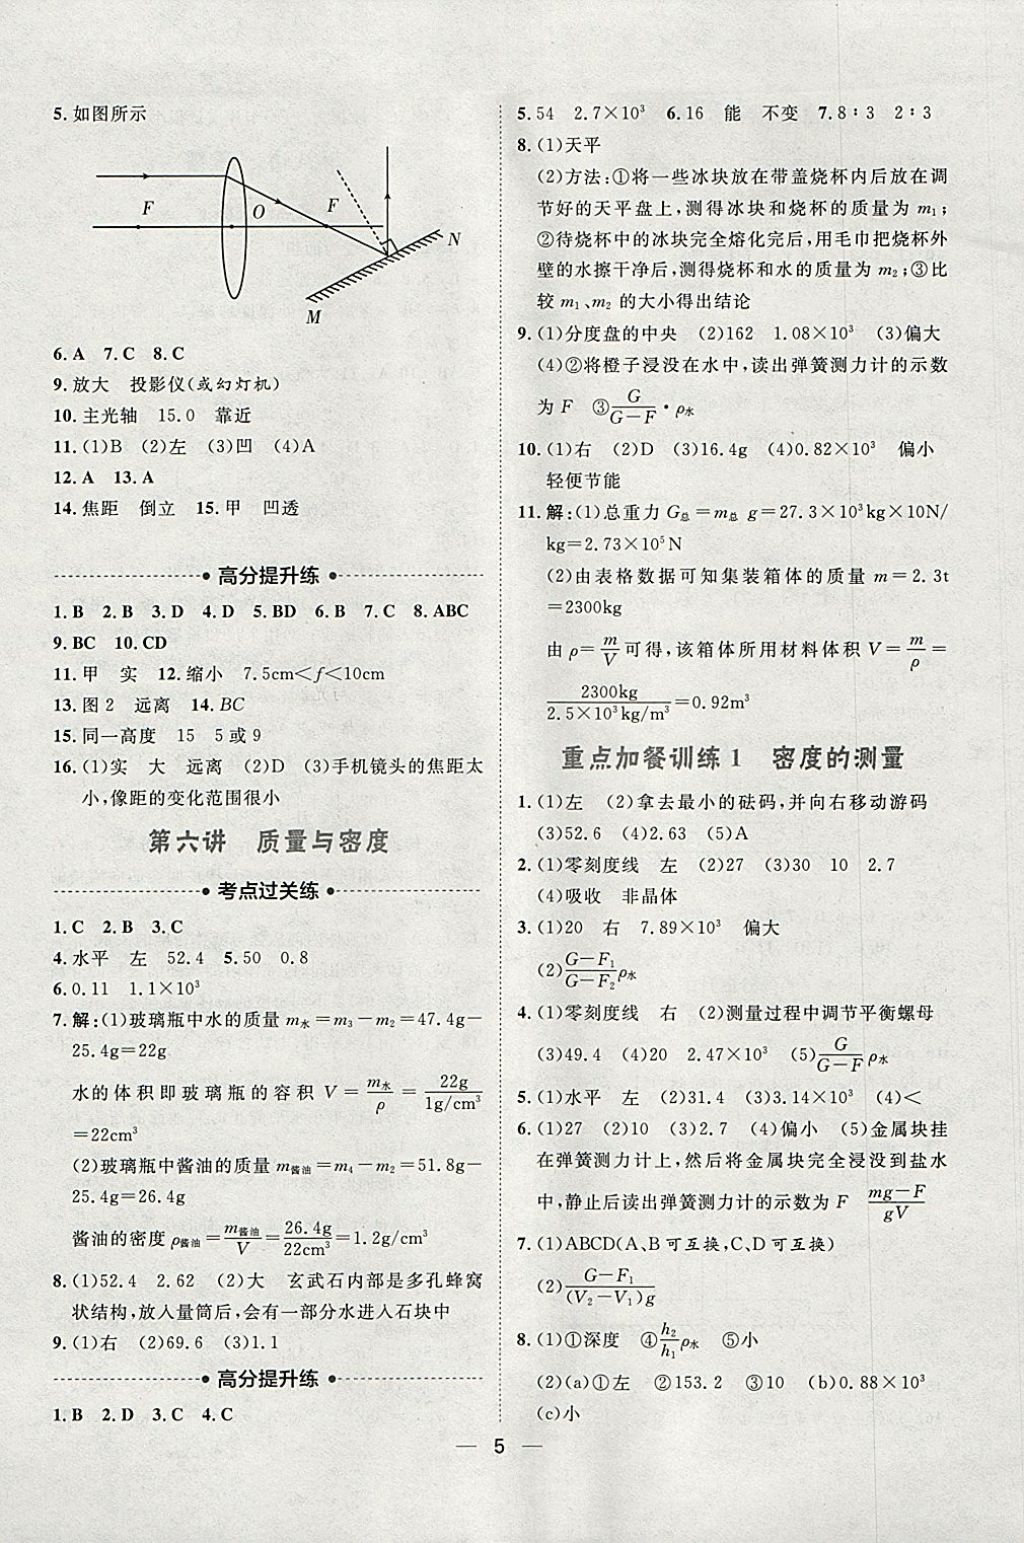 5.如图所示
F
O
F
N
M
6.A  7.C  8.C
9.放大  投影仪(或幻灯机)
10.主光轴  15.0  靠近
11.(1)B  (2)左  (3)凹  (4)A
12.A  13.A
14.焦距  倒立  15.甲  凹透
高分提升练
1.B  2.B  3.D  4.D  5.BD  6.B  7.C  8.ABC
9.BC  10.CD
11.甲  实  12.缩小  7.5cm<f<10cm
13.图2  远离  14.BC
15.同一高度  15  5或9
16.(1)实  大  远离  (2)D  (3)手机镜头的焦距太
小,像距的变化范围很小
第六讲  质量与密度
考点过关练
1.C  2.B  3.C
4.水平  左  52.4  5.50  0.8
6.0.11  1.1×10³
7.解:(1)玻璃瓶中水的质量 m水=m₃-m₂=47.4g-
25.4g=22g
水的体积即玻璃瓶的容积 V=m水/ρ=22g/1g/cm³
=22cm³
(2)玻璃瓶中酱油的质量 m酱油=m₄-m₂=51.8g-
25.4g=26.4g
酱油的密度 ρ酱油=m酱油/V=26.4g/22cm³=1.2g/cm³
8.(1)52.4  2.62  (2)大  玄武石内部是多孔蜂窝
状结构,放入量筒后,会有一部分水进入石块中
9.(1)右  (2)69.6  (3)1.1
高分提升练
1.B  2.D  3.C  4.C
5.54  2.7×10³  6.16  能  不变  7.8∶3  2∶3
8.(1)天平
(2)方法:①将一些冰块放在带盖烧杯内后放在调
节好的天平盘上,测得冰块和烧杯的质量为 m₁;
②待烧杯中的冰块完全熔化完后,用毛巾把烧杯外
壁的水擦干净后,测得烧杯和水的质量为 m₂;③比
较 m₁、m₂ 的大小得出结论
9.(1)分度盘的中央  (2)162  1.08×10³  (3)偏大
(4)②将橙子浸没在水中,读出弹簧测力计的示数
为 F  ③G/(G-F)·ρ水
10.(1)右  (2)D  (3)16.4g  (4)0.82×10³  偏小
轻便节能
11.解:(1)总重力 G总=m总 g=27.3×10³kg×10N/
kg=2.73×10⁵N
(2)由表格数据可知集装箱体的质量 m=2.3t
=2300kg
由 ρ=m/V 可得,该箱体所用材料体积 V=m/ρ=
2300kg/2.5×10³kg/m³=0.92m³
重点加餐训练1  密度的测量
1.(1)左  (2)拿去最小的砝码,并向右移动游码
(3)52.6  (4)2.63  (5)A
2.(1)零刻度线  左  (2)27  (3)30  10  2.7
(4)吸收  非晶体
3.(1)20  右  7.89×10³  偏大
(2)(G-F₁)/(G-F₂)ρ水
4.(1)零刻度线  右  (2)测量过程中调节平衡螺母
(3)49.4  (4)20  2.47×10³  (5)G/(G-F)ρ水
5.(1)水平  左  (2)31.4  (3)3.14×10³  (4)<
6.(1)27  (2)10  (3)2.7  (4)偏小  (5)金属块挂
在弹簧测力计上,然后将金属块完全浸没到盐水
中,静止后读出弹簧测力计的示数为 F  (mg-F)/gV
7.(1)ABCD(A、B可互换,C、D可互换)
(2)(G-F₁)/(V₂-V₁)g
8.(1)①深度  ④h₂/h₁ρ水  ⑤小
(2)(a)①左  ②153.2  ③10  (b)0.88×10³
(c)小
— 5 —